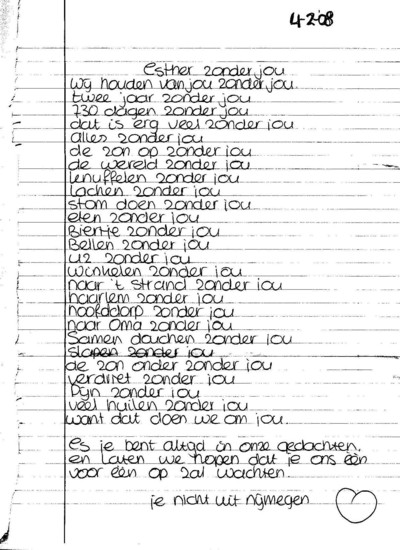 4-2-'08
Esther zonder jou
wij houden van jou zonder jou.
twee jaar zonder jou
730 dagen zonder jou
dat is erg veel zonder jou
alles zonder jou
de zon op zonder jou
de wereld zonder jou
knuffelen zonder jou
Lachen zonder jou
stom doen zonder jou
eten zonder jou
Biertje zonder jou
Bellen zonder jou
U2 zonder jou
winkelen zonder jou
naar 't strand zonder jou
haarlem zonder jou
hoofddorp zonder jou
naar oma zonder jou
Samen douchen zonder jou
slapen zonder jou
de zon onder zonder jou
verdriet zonder jou
Pijn zonder jou
veel huilen zonder jou
want dat doen we om jou.
es je bent altijd in onze gedachten.
en Laten we hopen dat je ons één
voor één op zal wachten.
je nicht uit nijmegen